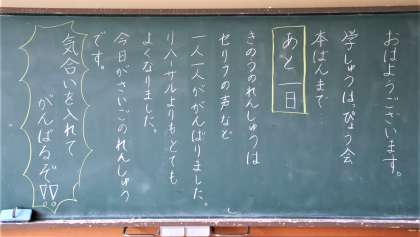 おはようございます。
学しゅうはっぴょう会
本ばんまで
あと一日
きのうのれんしゅうは
セリフの声など
一人一人ががんばりました。
リハーサルよりもとても
よくなりました。
今日がさいごのれんしゅう
です。
気合いを入れて
がんばるぞ!!